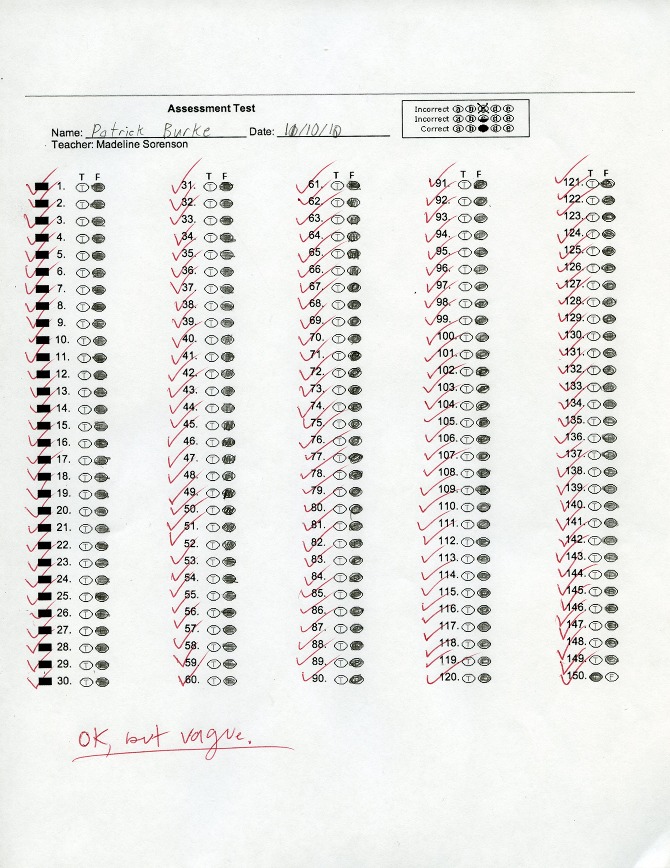 Assessment Test
Incorrect a b d e
Incorrect a b d e
Correct a b d e
Name: Patrick Burke Date: 10/10/10
Teacher: Madeline Sorenson
T F T F T F T F T F
1. T 31. T 61. T 91. T 121. T
2. T 32. T 62. T 92. T 122. T
3. T 33. T 63. T 93. T 123. T
4. T 34. T 64. T 94. T 124. T
5. T 35. T 65. T 95. T 125. T
6. T 36. T 66. T 96. T 126. T
7. T 37. T 67. T 97. T 127. T
8. T 38. T 68. T 98. T 128. T
9. T 39. T 69. T 99. T 129. T
10. T 40. T 70. T 100. T 130. T
11. T 41. T 71. T 101. T 131. T
12. T 42. T 72. T 102. T 132. T
13. T 43. T 73. T 103. T 133. T
14. T 44. T 74. T 104. T 134. T
15. T 45. T 75. T 105. T 135. T
16. T 46. T 76. T 106. T 136. T
17. T 47. T 77. T 107. T 137. T
18. T 48. T 78. T 108. T 138. T
19. T 49. T 79. T 109. T 139. T
20. T 50. T 80. T 110. T 140. T
21. T 51. T 81. T 111. T 141. T
22. T 52. T 82. T 112. T 142. T
23. T 53. T 83. T 113. T 143. T
24. T 54. T 84. T 114. T 144. T
25. T 55. T 85. T 115. T 145. T
26. T 56. T 86. T 116. T 146. T
27. T 57. T 87. T 117. T 147. T
28. T 58. T 88. T 118. T 148. T
29. T 59. T 89. T 119. T 149. T
30. T 60. T 90. T 120. T 150. F
OK, but vague.